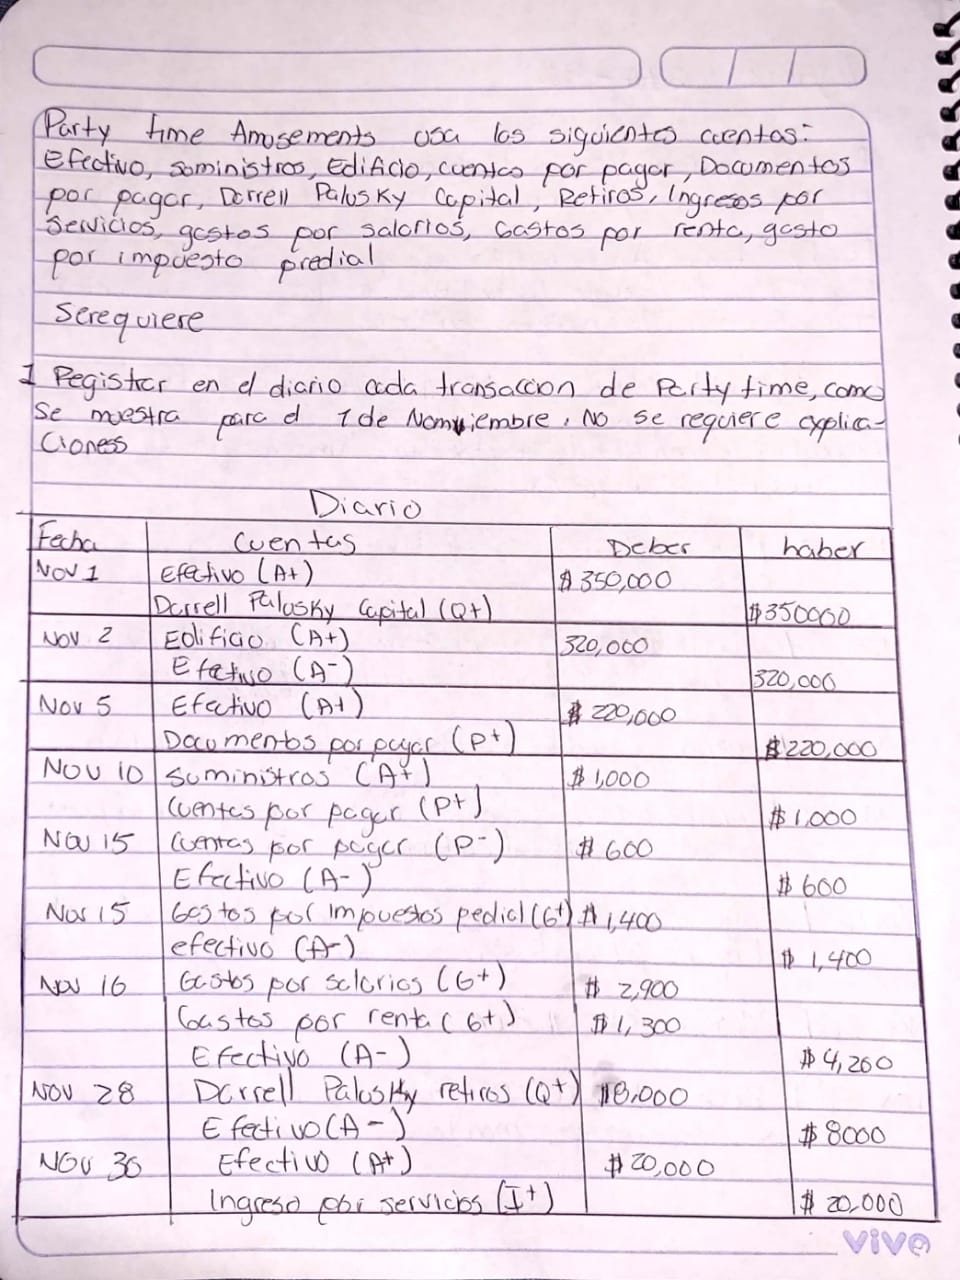 Party time Amusements usa las siguientes cuentas:
Efectivo, suministros, Edificio, cuentas por pagar, Documentos
por pagar, Darrell Palusky Capital, Retiros, Ingresos por
Servicios, gastos por salarios, Gastos por renta, gasto
por impuesto predial
Serequiere
1 Registrar en el diario cada transaccion de Party time, como
Se muestra para el 1 de Nomviembre, No se requiere explica-
Cioness
Diario
Fecha Cuentas Deber haber
Nov 1 Efectivo (A+) $ 350,000
Darrell Palusky Capital (Q+) $350000
Nov 2 Edificio (A+) 320,000
Efectivo (A-) 320,000
Nov 5 Efectivo (A+) $ 220,000
Documentos por pagar (P+) $220,000
Nov 10 Suministros (A+) $ 1,000
Cuentas por pagar (P+) $ 1,000
Nov 15 Cuentas por pagar (P-) $ 600
Efectivo (A-) $ 600
Nov 15 Gastos por impuestos pedial (G+) $ 1,400
efectivo (A-) $ 1,400
Nov 16 Gastos por salarios (G+) $ 2,900
Gastos por renta (G+) $ 1,300
Efectivo (A-) $ 4,200
Nov 28 Darrell Palusky retiros (Q+) $8,000
Efectivo (A-) $ 8000
Nov 30 Efectivo (A+) $ 20,000
Ingreso por servicios (I+) $ 20,000
vive